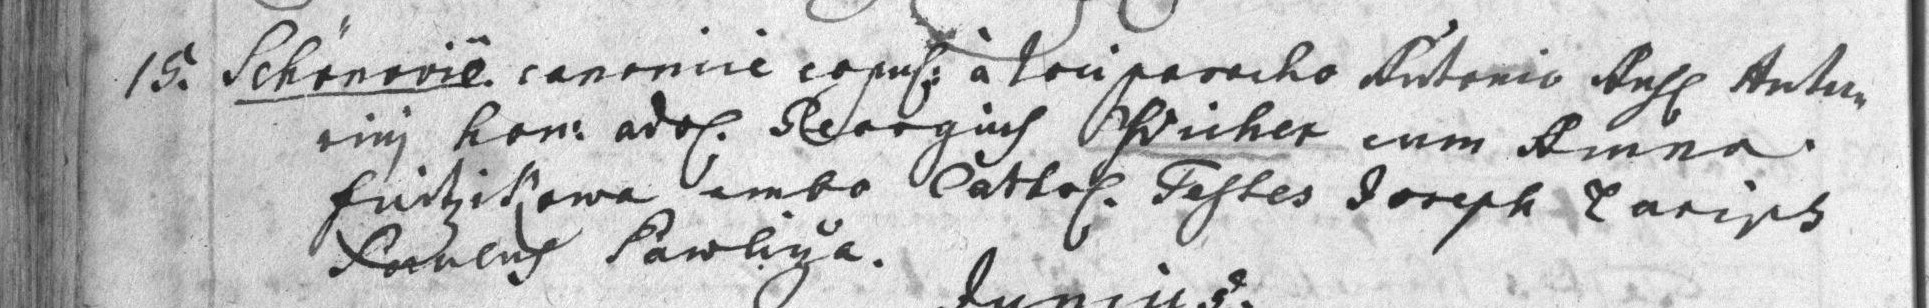 15. Schönoviê. canonice copul: à loci parocho Antonio Ans Antu-
rinj hon: adol. Georgius Wicher cum Anna
furtzikowa ambo Cathol. Testes Joseph Carips
Paulus Pawliza.
Junius.